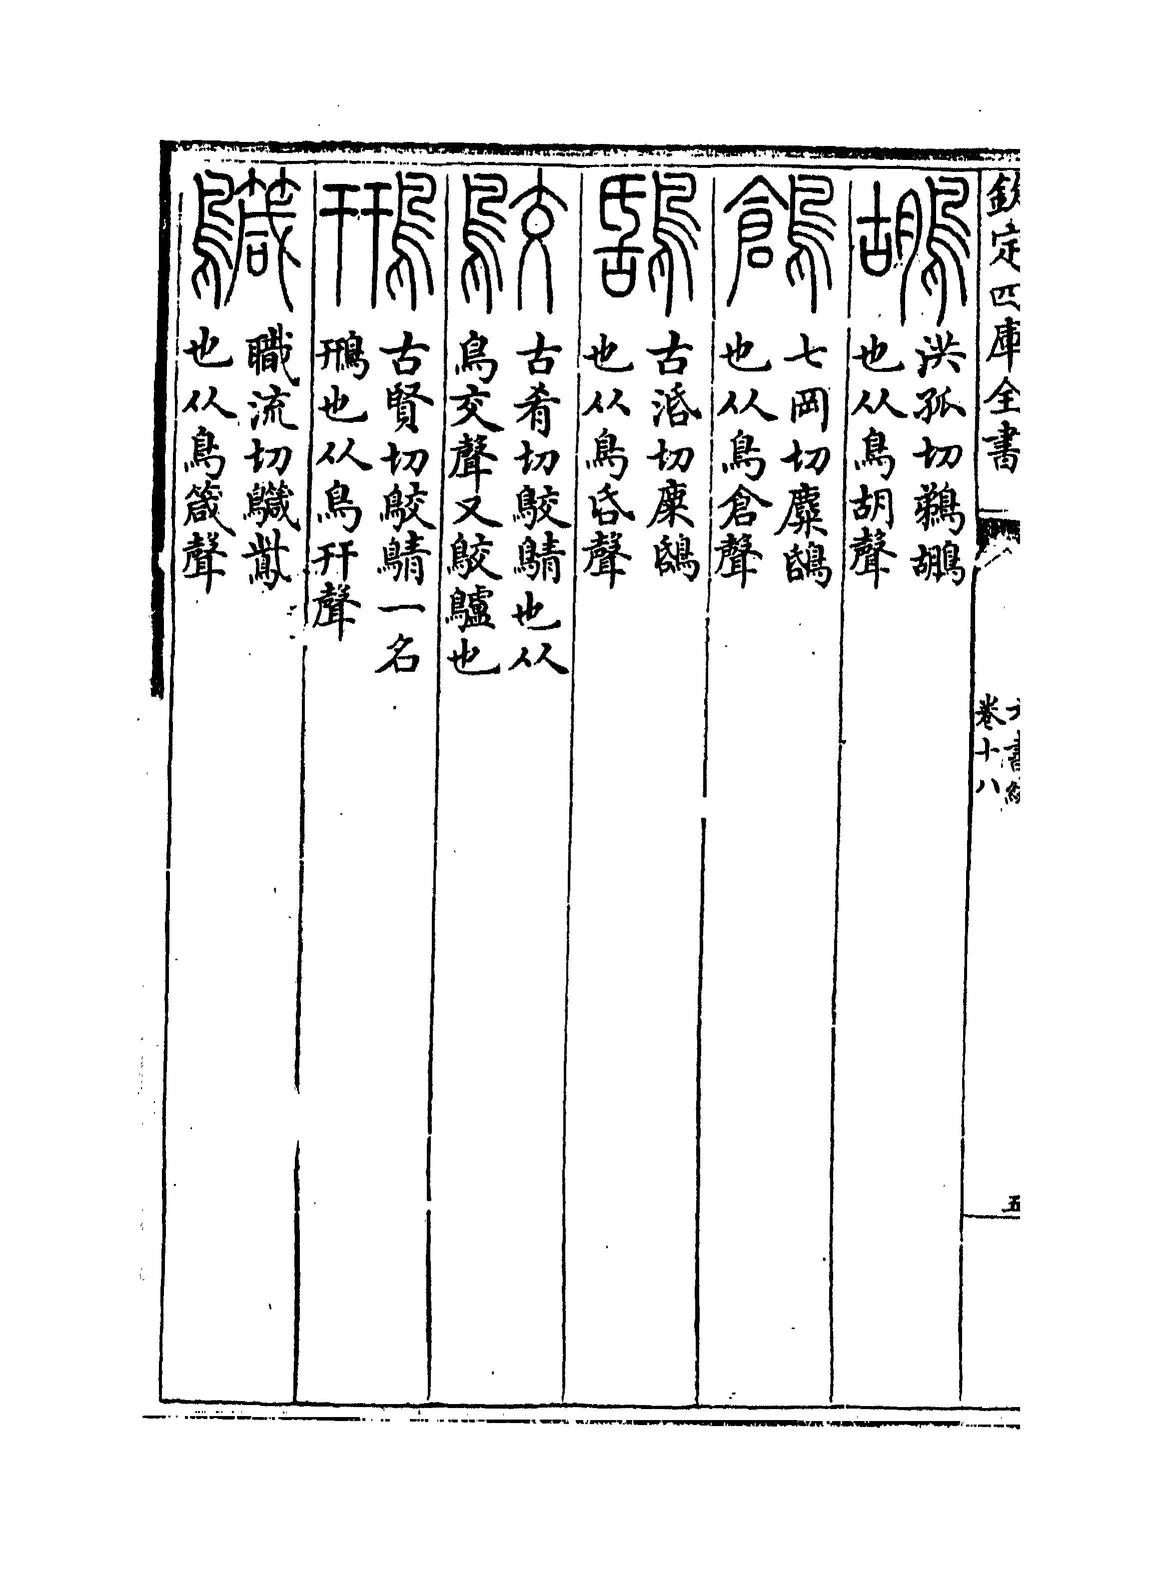 欽定四庫全書
六書統
卷十八
五
鶘
洪孤切鵜鶘
也从鳥胡聲
鶬
七岡切麋鴰
也从鳥倉聲
鴰
古𣴠切麋鴰
也从鳥𠯑聲
鵁
古肴切鵁鶄也从
鳥交聲又鵁鸕也
鳽
古賢切鵁鶄一名
鳽也从鳥幵聲
職流切鴜
也从鳥箴聲